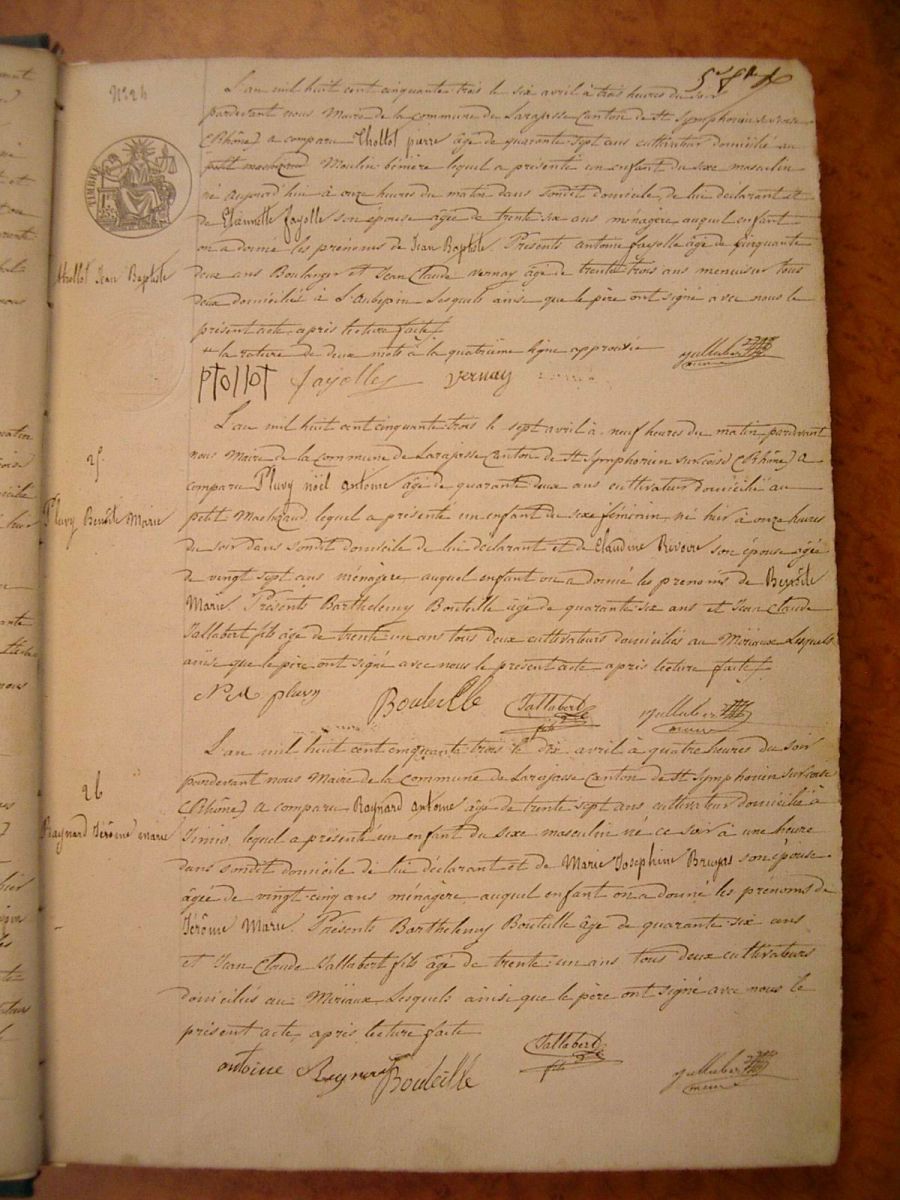 N° 24
5e fet
TIMBRE
L'an mil huit cent cinquante trois le six avril à trois heures du soir
pardevant nous Maire de la commune de Larajasse Canton de St Symphorien sur coise
(Rhône) a comparu Thollot pierre âgé de quarante sept ans cultivateur domicilié au
petit machizaud Moulin bénière lequel a présenté un enfant du sexe masculin
né aujourd'hui à onze heures du matin dans son dit domicile, de lui déclarant et
de Etiennette fayolle son épouse agée de trente six ans ménagère auquel enfant
on a donné les prénoms de Jean Baptiste. Présents antoine fayolle âgé de cinquante
thollot Jean Baptiste
deux ans Boulanger et Jean Claude vernay âgé de trente trois ans menuisier tous
deux domiciliés à L'Aubépin Lesquels ainsi que le père ont signé avec nous le
présent acte, après lecture faite /.
+ la rature de deux mots à la quatrième ligne approuvée
ptollot fayolle vernay
L'an mil huit cent cinquante trois le sept avril à neuf heures du matin pardevant
nous Maire de la Commune de Larajasse Canton de St Symphorien sur coise (Rhône) a
25
comparu Pluvy noël antoine âgé de quarante deux ans cultivateur domicilié au
Pluvy Benoîte Marie
petit Machizaud, lequel a présenté un enfant de sexe féminin, né hier à onze heures
du soir dans sondit domicile de lui déclarant et de Claudine Revoire son épouse âgée
de vingt sept ans ménagère auquel enfant on a donné les prénoms de Benoîte
Marie. Présents Barthelemy Bouteille âgé de quarante six ans et Jean Claude
Jallabert fils âgé de trente un ans tous deux cultivateurs domiciliés au Mizieux Lesquels
ainsi que le père ont signé avec nous le présent acte après lecture faite /.
pluvy Bouteille Jallabert fils
L'an mil huit cent cinquante trois le dix avril à quatre heures du soir
pardevant nous Maire de la commune de Larajasse Canton de St Symphorien sur coise
26
(Rhône) a comparu Raynard antoine âgé de trente sept ans cultivateur domicilié à
Raynard Jérôme Marie
lequel a présenté un enfant du sexe masculin né ce soir à une heure
dans sondit domicile de lui déclarant et de Marie Josephine Bruyas son épouse
âgée de vingt cinq ans ménagère auquel enfant on a donné les prénoms de
Jérôme Marie. Présents Barthelemy Bouteille âgé de quarante six ans
et Jean Claude Jallabert fils âgé de trente un ans tous deux cultivateurs
domiciliés au Mizieux Lesquels ainsi que le père ont signé avec nous le
présent acte, après lecture faite
antoine Reynard Bouteille Jallabert fils